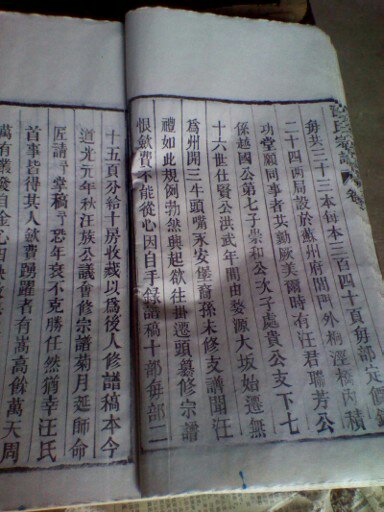 氏家譜 卷
每共三十三本每本三百四十頁每部定價銀
二十四兩局設於蘇州府閶門外桐涇橋內積
功堂願同事者共勷厥美爾時有汪君聯芳公
係越國公第七子崇和公次子處貴公支下七
十六世仕賢公洪武年間由婺源大坂始遷無
爲州開三牛頭嘴永安堡裔孫未修支譜聞汪
禮如此規例勃然興起欲往掛遷頭纂修宗譜
恨歛費不能從心因自手錄譜稿十部每部二
十五頁分給十房收藏以爲後人修譜稿本今
道光元年秋汪族公議會修宗譜菊月延師命
匠請予掌稿予恐年衰不克勝任然猶幸汪氏
首事皆得其人歛費踴躍者有嵩高餘萬天周
萬有叢發自金心